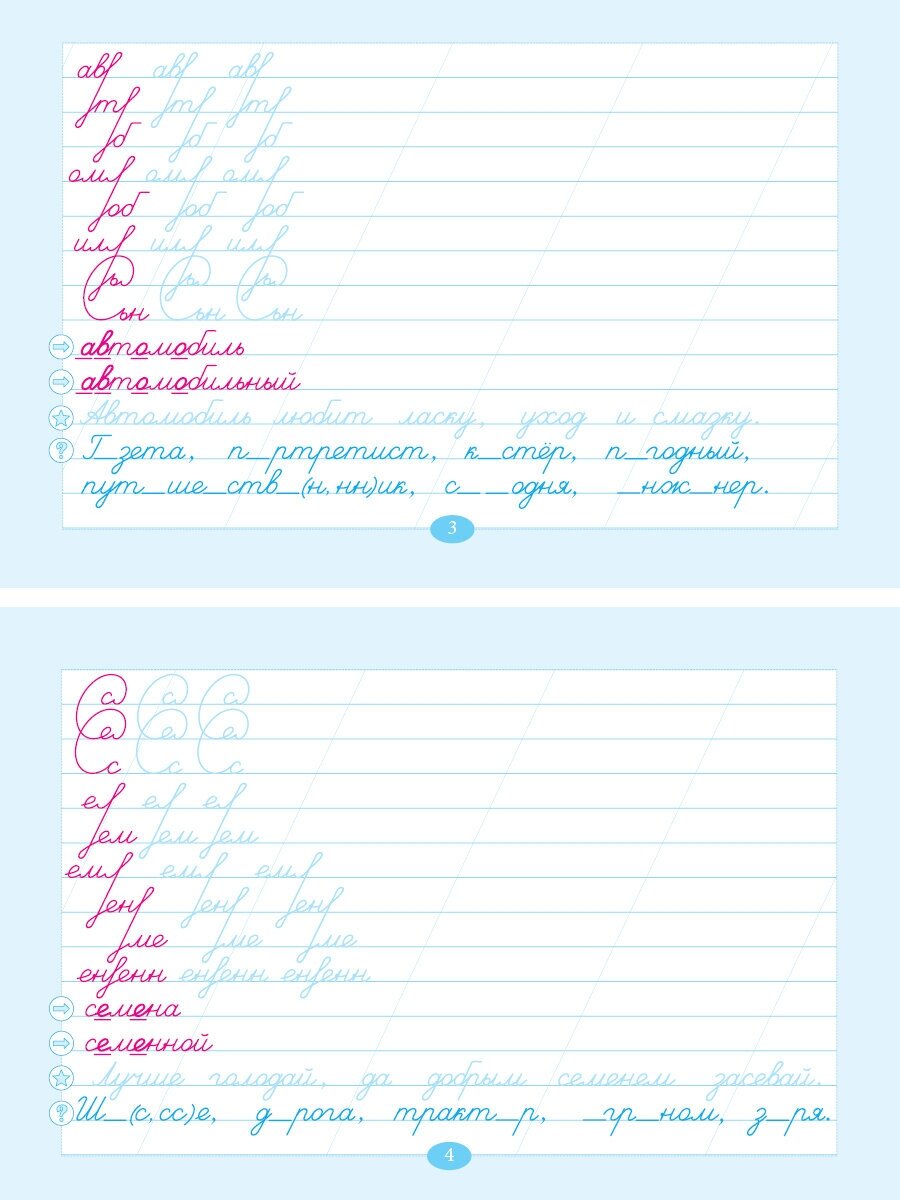 ав ав ав
т т т
об об об
ом ом ом
об об об
ил ил ил
ы ы ы
ьн ьн ьн
автомобиль
автомобильный
Автомобиль любит ласку, уход и смазку.
Г_зета, п_ртретист, к_стёр, п_годный,
пут_ше_ств_(н, нн)ик, с_ _одня, _нж_нер.
3
С С С
е е е
с с с
е е е
ем ем ем
ем ем ем
ен ен ен
ме ме ме
ен енн ен енн ен енн
семена
семенной
Лучше голодай, да добрым семенем засевай.
Ш_(с, сс)е, д_рога, тракт_р, _гр_ном, з_ря.
4